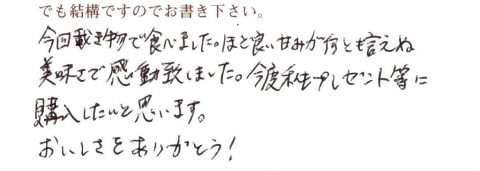 でも結構ですのでお書き下さい。
今回戴き物で食べました。ほど良い甘みが何とも言えぬ
美味さで感動致しました。今度私もプレゼント等に
購入したいと思います。
おいしさをありがとう!